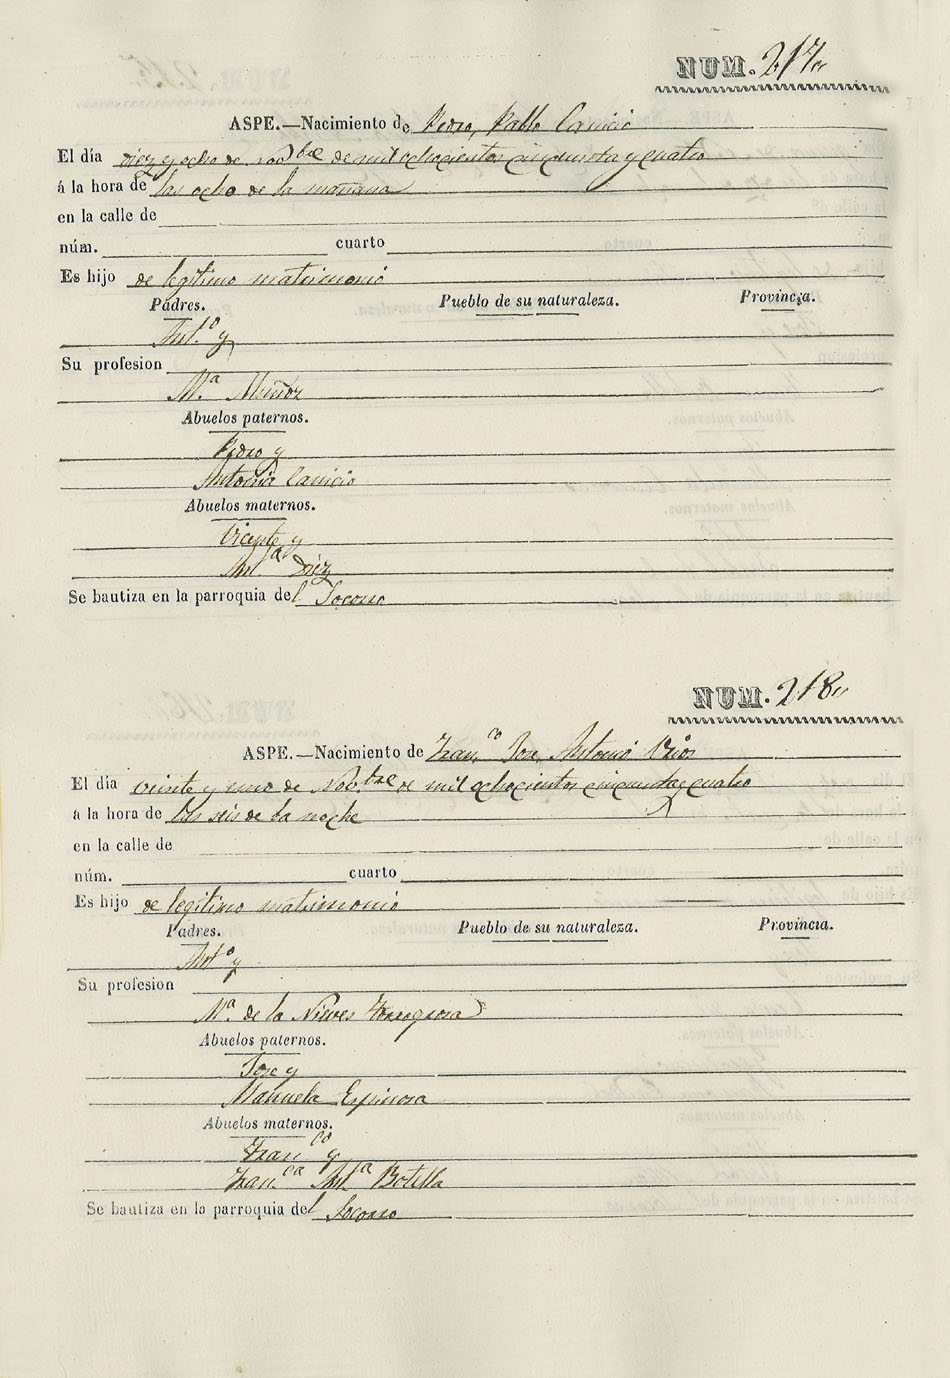 NUM. 217
ASPE.—Nacimiento de Pedro, Pablo
El día diez y ocho de Novbre de mil ochocientos cincuenta y cuatro
á la hora de las ocho de la mañana
en la calle de
núm. cuarto
Es hijo de legitimo matrimonio
Padres. Pueblo de su naturaleza. Provincia.
Anto y
Su profesion
Ma Muñoz
Abuelos paternos.
Pedro y
Antonia
Abuelos maternos.
Vicente y
Anta Diez
Se bautiza en la parroquia del Socorro
NUM. 218
ASPE.—Nacimiento de Franco Jose, Antonio
El día veinte y uno de Novbre de mil ochocientos cincuenta y cuatro
á la hora de las seis de la noche
en la calle de
núm. cuarto
Es hijo de legitimo matrimonio
Padres. Pueblo de su naturaleza. Provincia.
Anto y
Su profesion
Ma. de la Nieves
Abuelos paternos.
Jose y
Manuela Espinosa
Abuelos maternos.
Franco y
Franca Anta Botella
Se bautiza en la parroquia del Socorro